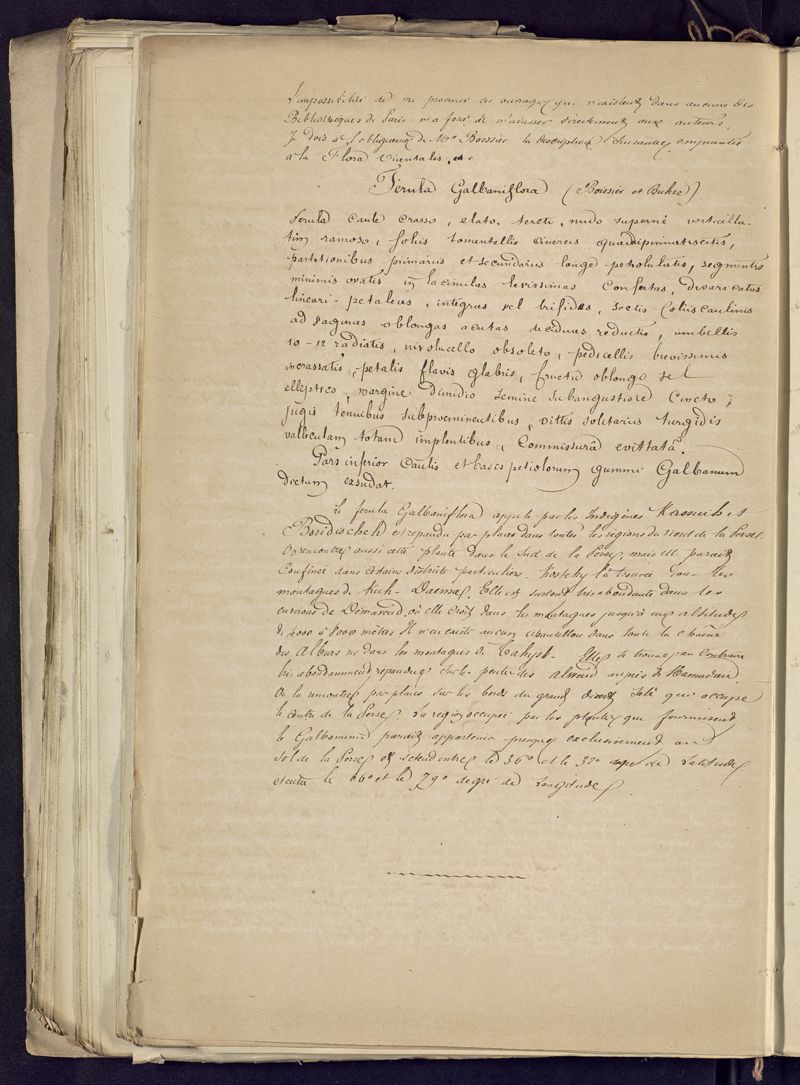 L'impossibilité de me procurer ces ouvrages qui n'existent dans aucune des
Bibliothèques de Paris m'a forcé de m'adresser directement aux auteurs.
Je dois à l'obligeance de Mr Boissier la description suivante, empruntée
à la Flora Orientalis.
Ferula Galbaniflora (Boissier et Buhse)
Ferula caule crasso, elato, tereti, nudo superné verticilla
tim ramoso, foliis tomentellis cinereis quadripinnatisectis,
partitionibus primariis et secundariis longé petiolulatis, segmentis
minimis ovatis in lacinulas brevissimas confertas, divaricatas
lineari-, integras vel trifidas, sectis foliis caulinis
ad vaginas oblongas acutas deciduas reductis, umbellis
10-12 radiatis, involucello obsoleto, pedicellis brevissimis
incrassatis, petalis flavis glabris, fructu oblongo vel
elliptico, margine dimidio semine subangustiore cincto,
jugis tenuibus subprominentibus, vittis solitariis turgidis
valleculam totam implentibus, Commissurâ evittatâ.
Pars inferior Caulis et bases petiolorum gummi Galbanum
dictum exsudat.
Le ferula Galbaniflora appelé par les Indigènes Kassuih et
Boridscheh est répandu par places dans toutes les régions du nord de la Perse.
On rencontre aussi cette plante dans le Sud de la Perse, mais elle paraît
Confinée dans certains districts particuliers. Kotschy l'a trouvée sur les
montagnes de Kuh-Daëna. Elle est surtout très abondante dans les
environs de Démavend, où elle croît dans les montagnes jusqu'à une altitude
de 4000 à 8000 mètres. Il n'en existe aucun échantillon dans toute la chaîne
des Alburs ni dans les montagnes de Talysch. Elle se trouve au Contraire
très abondamment répandue sur la pente des alwend auprès de Hamadan.
On la rencontre par places sur les bords du grand désert salé qui occupe
le centre de la Perse. La région occupée par les plantes qui fournissent
le Galbanum paraît appartenir presque exclusivement au
sol de la Perse et s'étend entre le 36° et le 38° degré de Latitude
et entre le 66° et le 79° degré de Longitude.